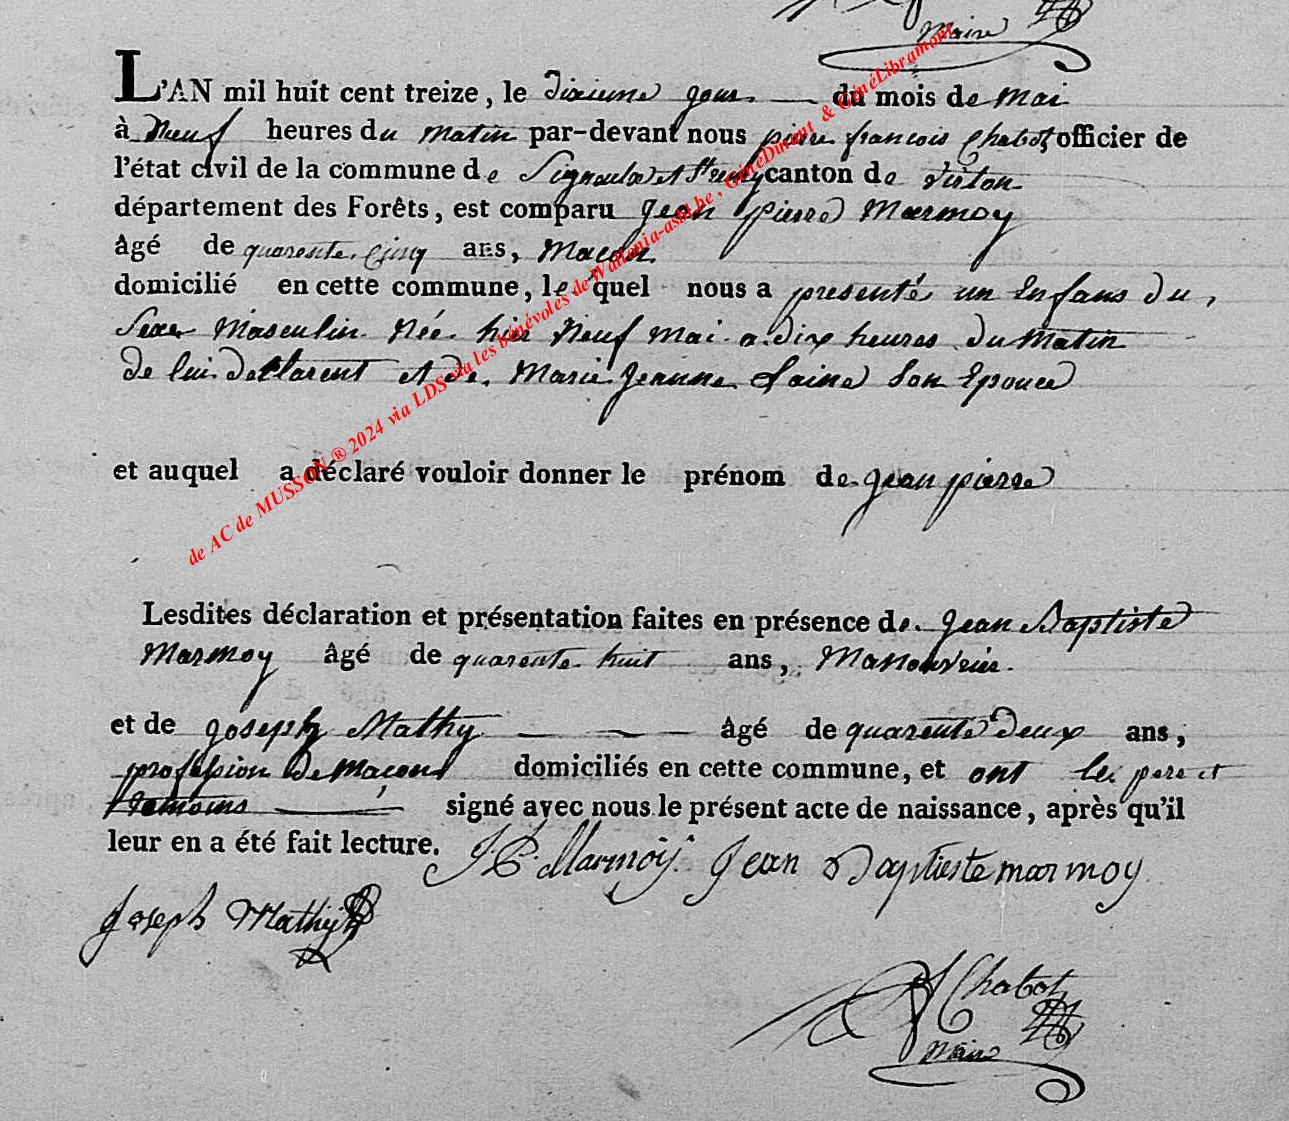 Maire
L'AN mil huit cent treize, le dixieme jour du mois de mai
à neuf heures du matin par-devant nous pierre francois Chabot officier de
l'état civil de la commune de Signeulx et St remy canton de virton
département des Forêts, est comparu Jean pierre Marmoy
âgé de quarente cinq ans, Macon
domicilié en cette commune, lequel nous a presenté un Enfans du
Sexe Masculin Née hier Neuf mai a dix heures du Matin
de lui declarent et de Marie Jeanne Laine Son Epouce
et auquel a déclaré vouloir donner le prénom de jean pierre
Lesdites déclaration et présentation faites en présence de Jean Baptiste
Marmoy âgé de quarente huit ans, Manouvrier
et de joseph Mathy âgé de quarente deux ans,
profession de Macons domiciliés en cette commune, et ont les pere et
temoins signé avec nous le présent acte de naissance, après qu'il
leur en a été fait lecture. J. P. Marmoÿ Jean Baptiste marmoy
Joseph Mathij
Chabot
Maire
de AC de MUSSON ® 2024 via LDS via les bénévoles de Wallonia-asbl.be, GénéDurant & GénéLibramont